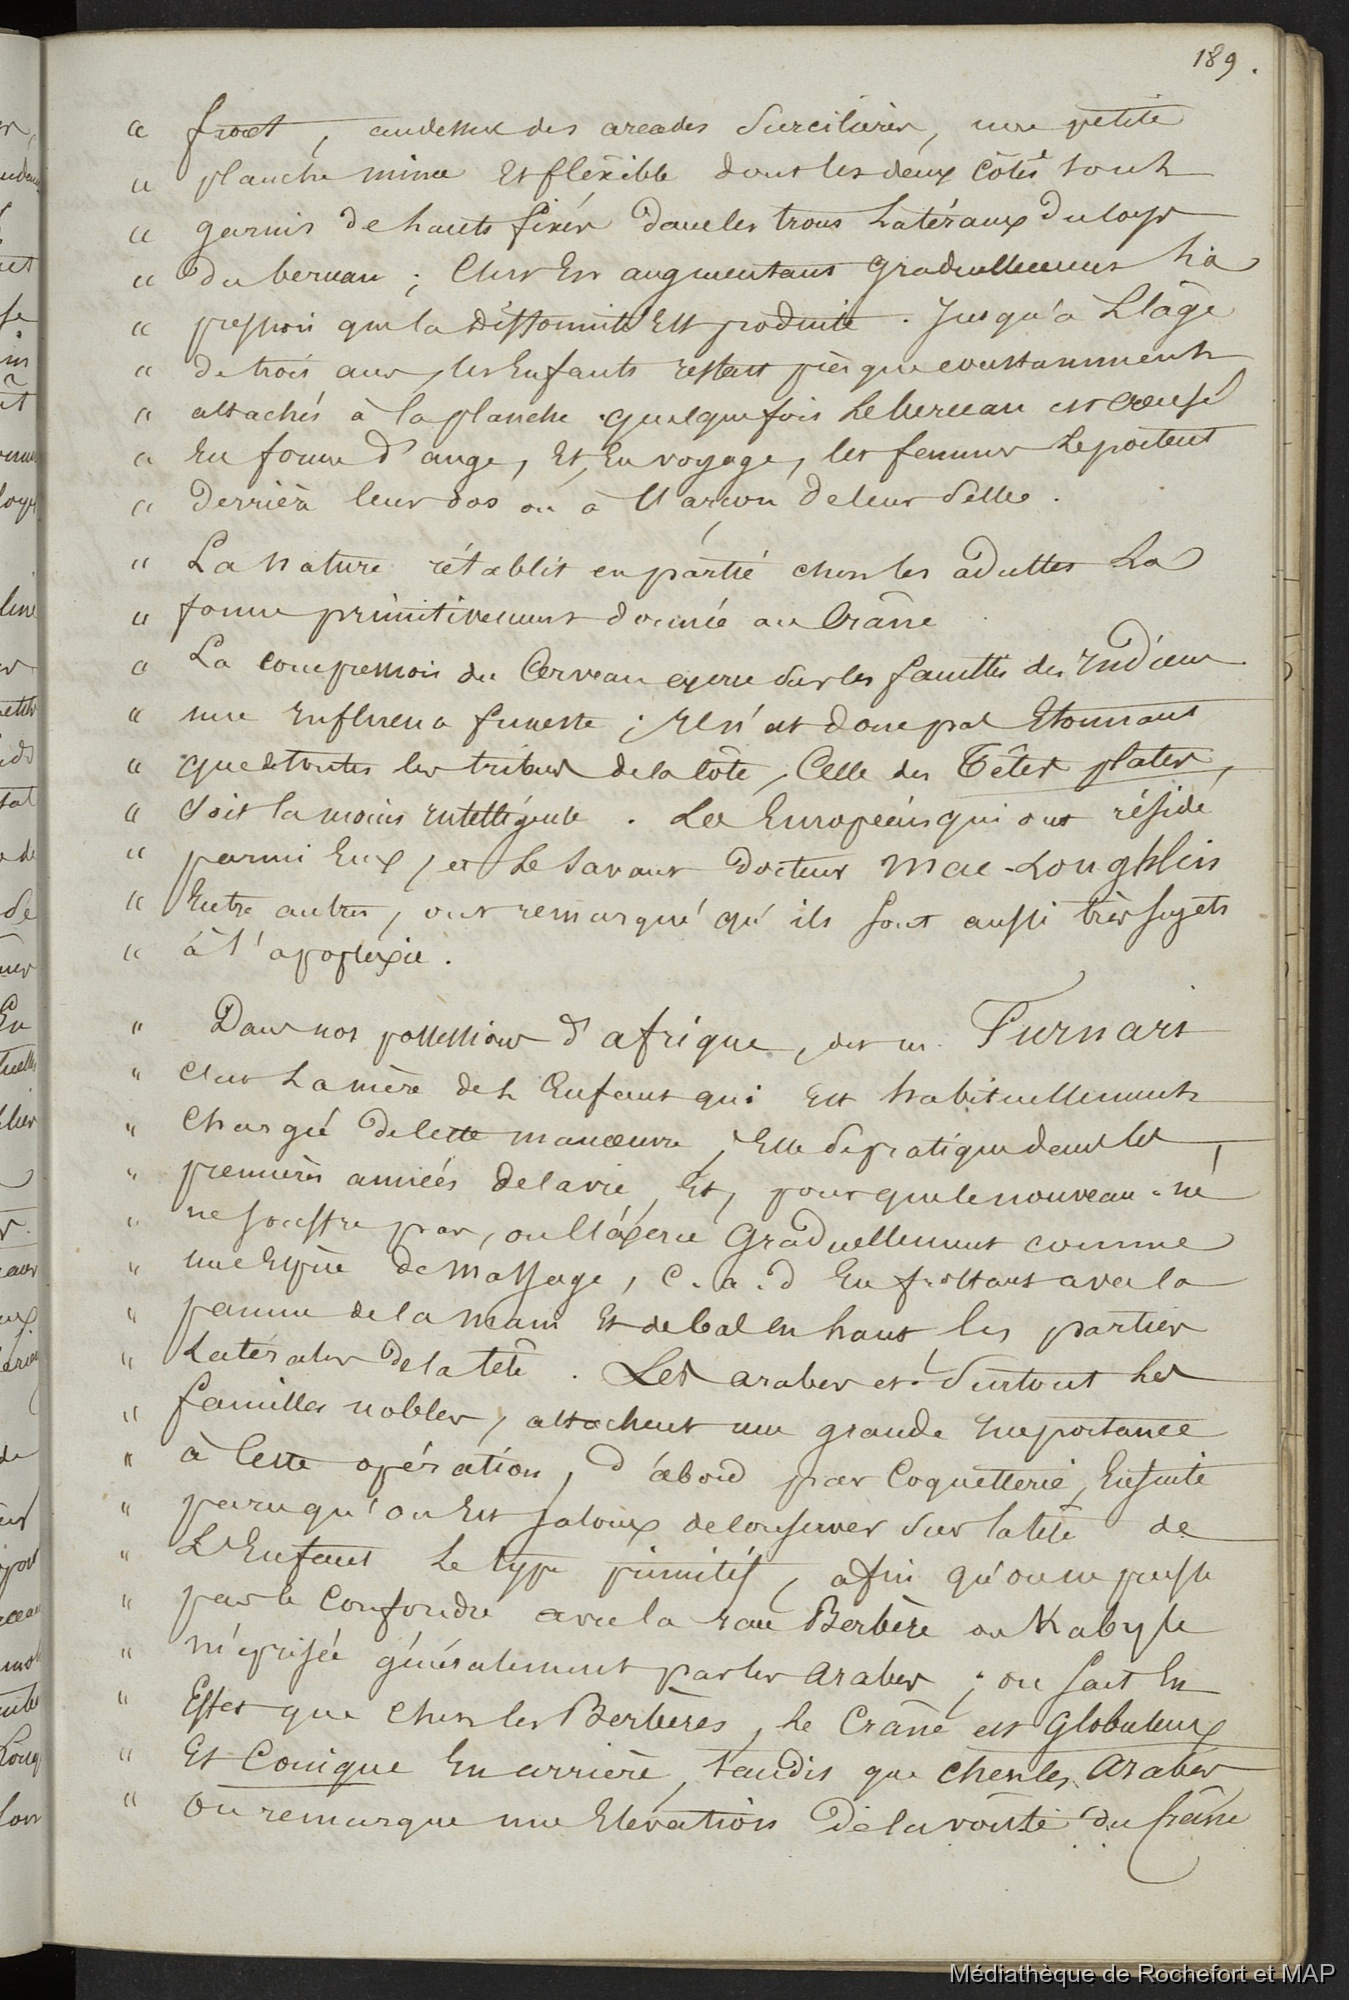 189.
" front, audessus des arcades Surcilières, une petite
" planche mince Et fléxible dont les deux côtés sont
" garnis de hauts fixés dans les trous Latéraux du corps
" du berceau ; C'est En augmentant graduellement la
" pression que la difformité Est produite. Jusqu'à L'âge
" de trois ans, les Enfants restent présque constamment
" attachés à la planche. quelquefois Le berceau est creusé
" En forme d'auge, Et, En voyage, les femmes Le portent
" derrière leur dos ou à l'arçon de leur Selle.
" La nature rétablit en partie chez les adultes La
" forme primitivement donnée au Crâne
" La compression du Cerveau exerce Sur les facultés des Indiens
" une Influence funeste ; Il n'est donc pas Etonnant
" que de toutes les tribus de la Côte, Celle des Têtes plates,
" Soit la moins Intelligente. Les Européens qui ont résidé
" parmi Eux, et Le Savant Docteur Mac-Loughlin
" Entre autres, ont remarqué qu'ils sont aussi très sujets
" à l'apoplexie.
" Dans nos possessions d'afrique, dit m. Furnari
" C'est La mère de l'Enfant qui Est habituellement
" Chargée de Cette manœuvre, Elle Se pratique dans les
" premières années de la vie, Et, pour que le nouveau-né
" ne souffre pas, on l'éxerce Graduellement comme
" une Espèce de Massage, C.a.d En frottant avec la
" paume de la main Et de bas En haut, les parties
" Latérales de la tête. Les arabes et Surtout Les
" familles nobles, attachent une grande Importance
" à Cette opération, d'abord par Coquetterie, Ensuite
" parce qu'on Est jaloux de Conserver Sur la tête de
" L'Enfant Le type primitif, afin qu'on ne puisse
" pas le Confondre avec la race Berbère ou Kabyle
" méprisée généralement par les Arabes ; on sait En
" Effet que Chez les Berbères, Le Crâne est Globuleux
" Et Conique En arrière, tandis que chez les Arabes
" On remarque une Elévation de la voûte du Crâne
Médiathèque de Rochefort et MAP